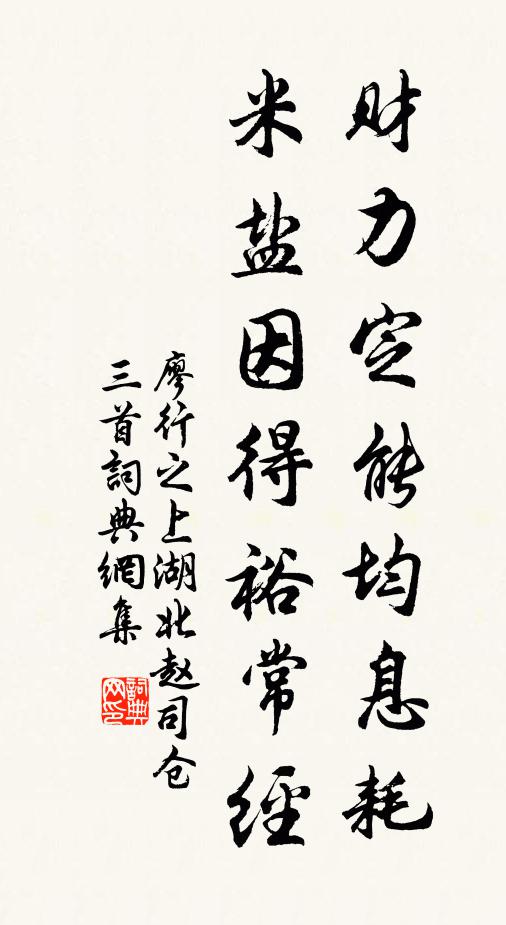 财力定能均息耗
米盐因得裕常經
廖行之上湖北赵司仓
三首詞典網集
詞典
网印